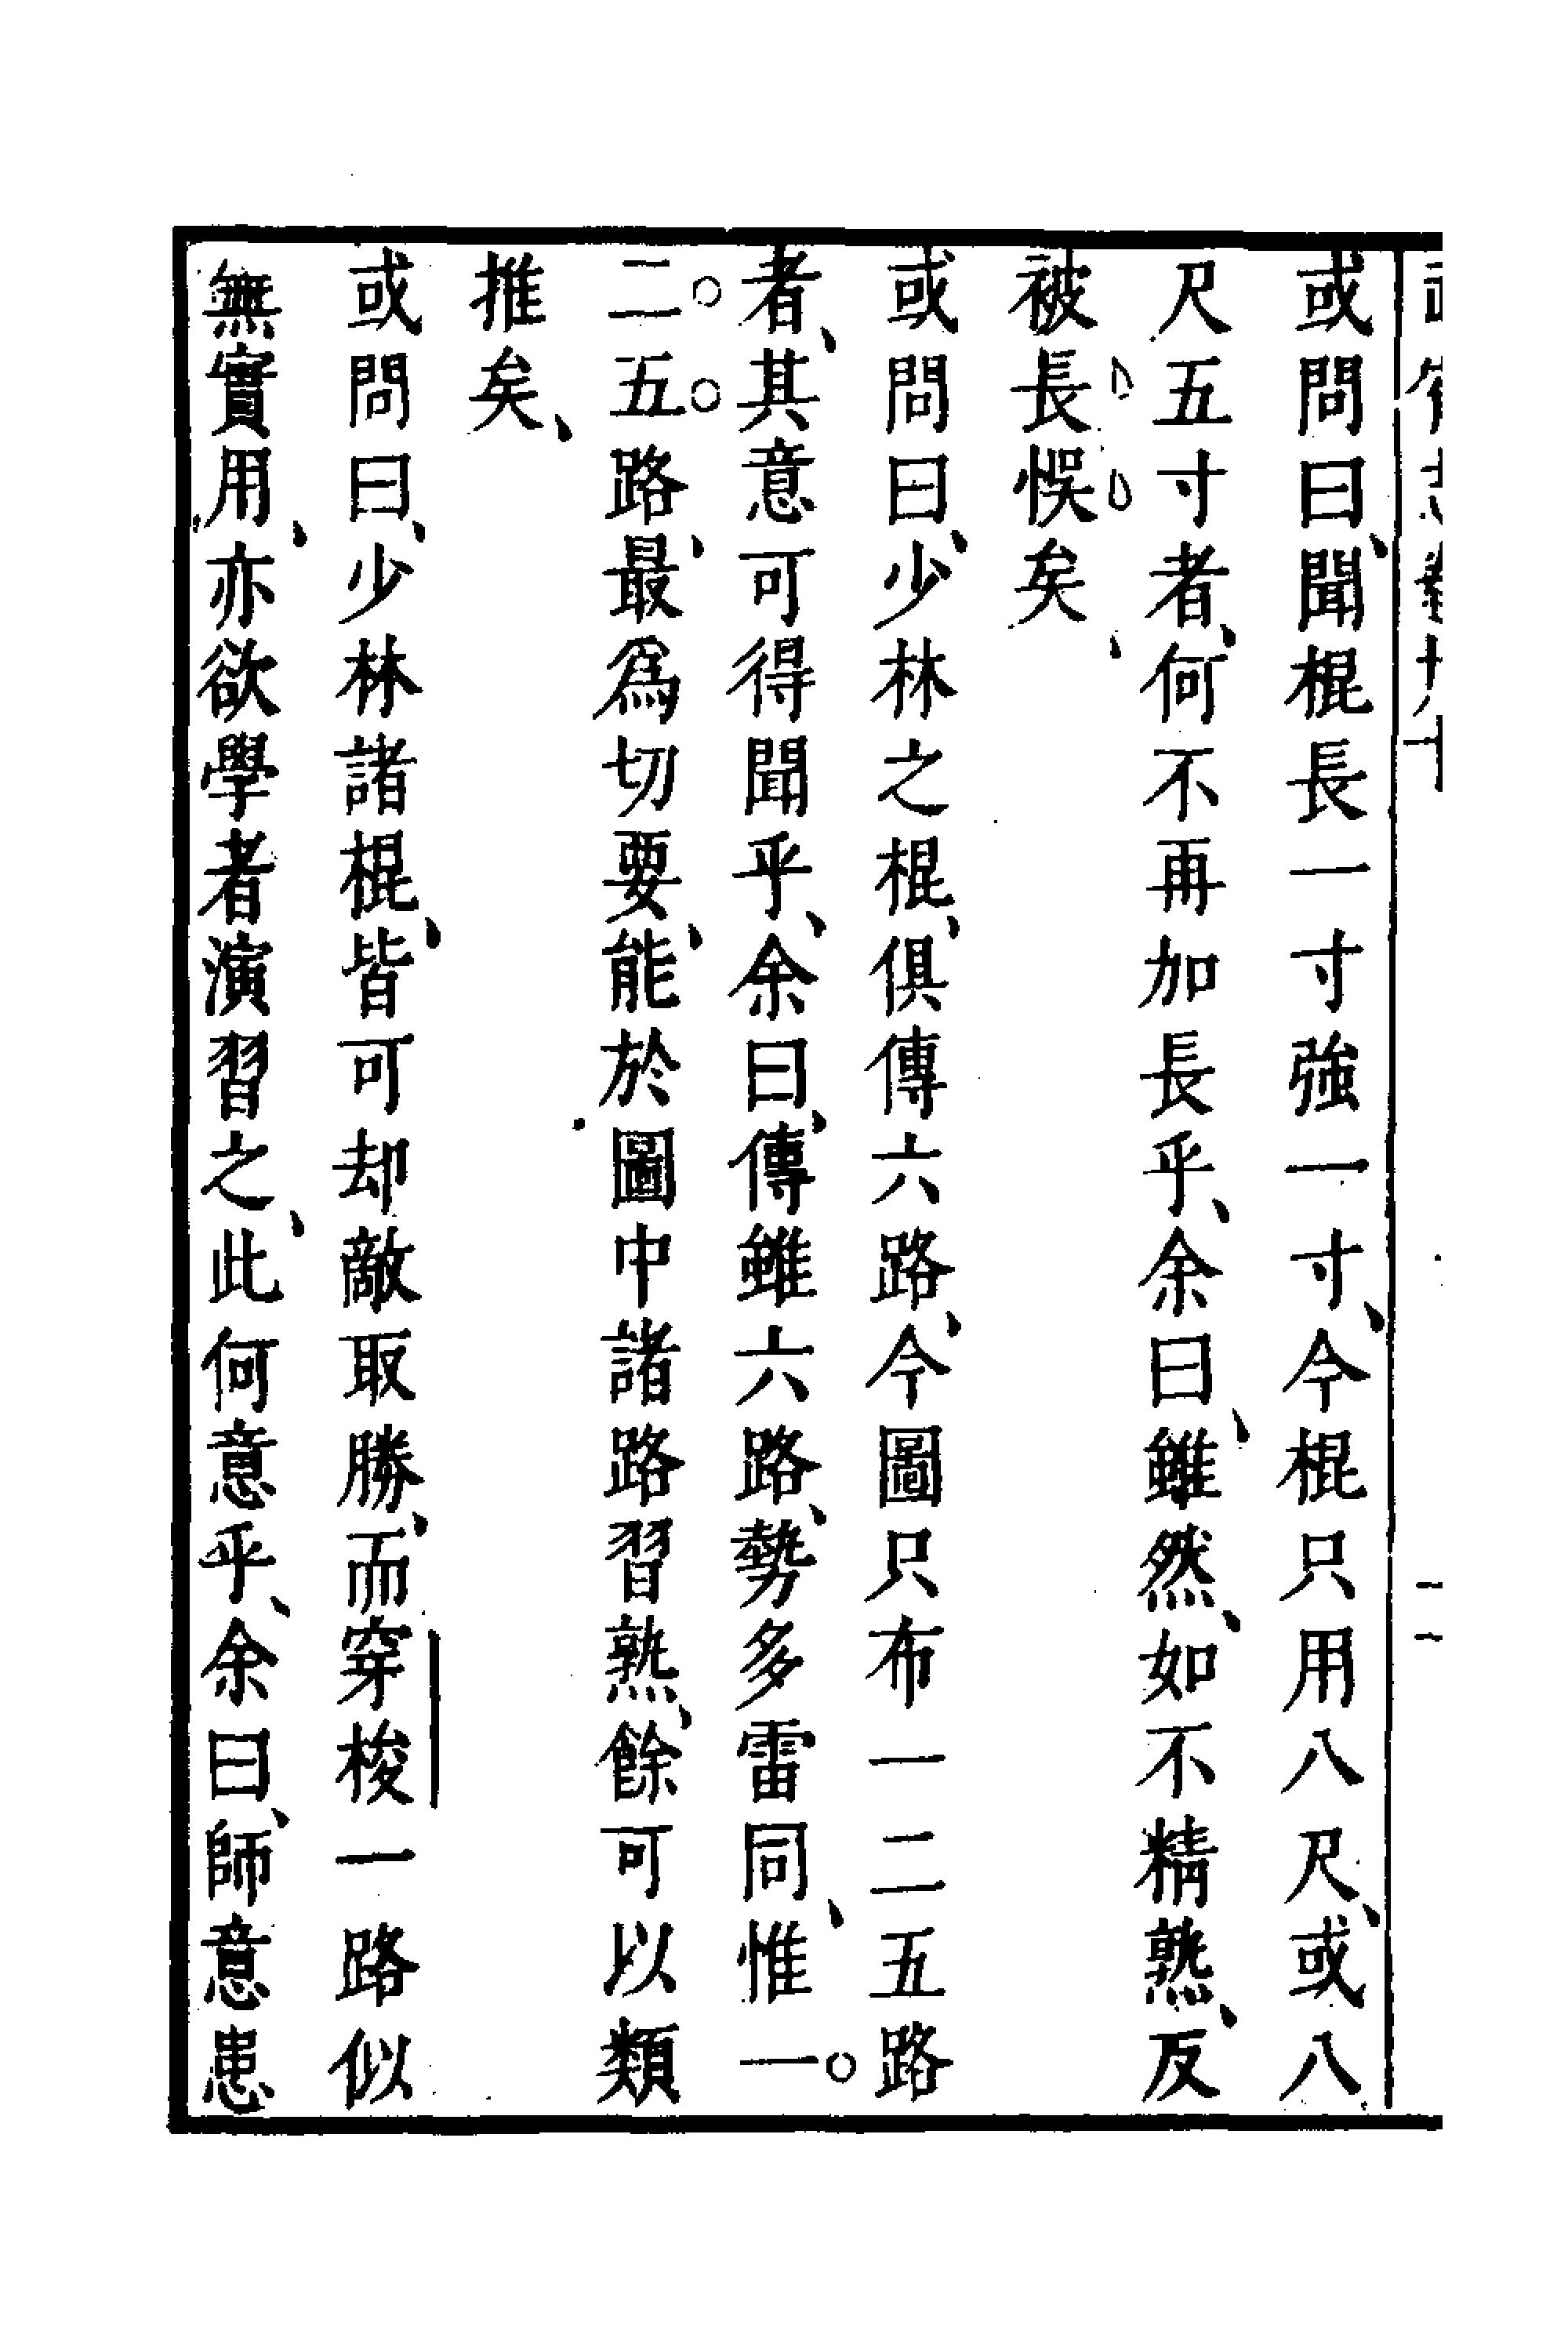 或問曰、聞棍長一寸強一寸、今棍只用八尺、或八
尺五寸者、何不再加長乎、余曰、雖然、如不精熟、反
被長悮矣、
或問曰、少林之棍、俱傳六路、今圖只布一二五路
者、其意可得聞乎、余曰、傳雖六路、勢多雷同、惟一
二五路、最爲切要、能於圖中諸路習熟、餘可以類
推矣、
或問曰、少林諸棍、皆可却敵取勝、而穿梭一路似
無實用、亦欲學者演習之、此何意乎、余曰、師意患